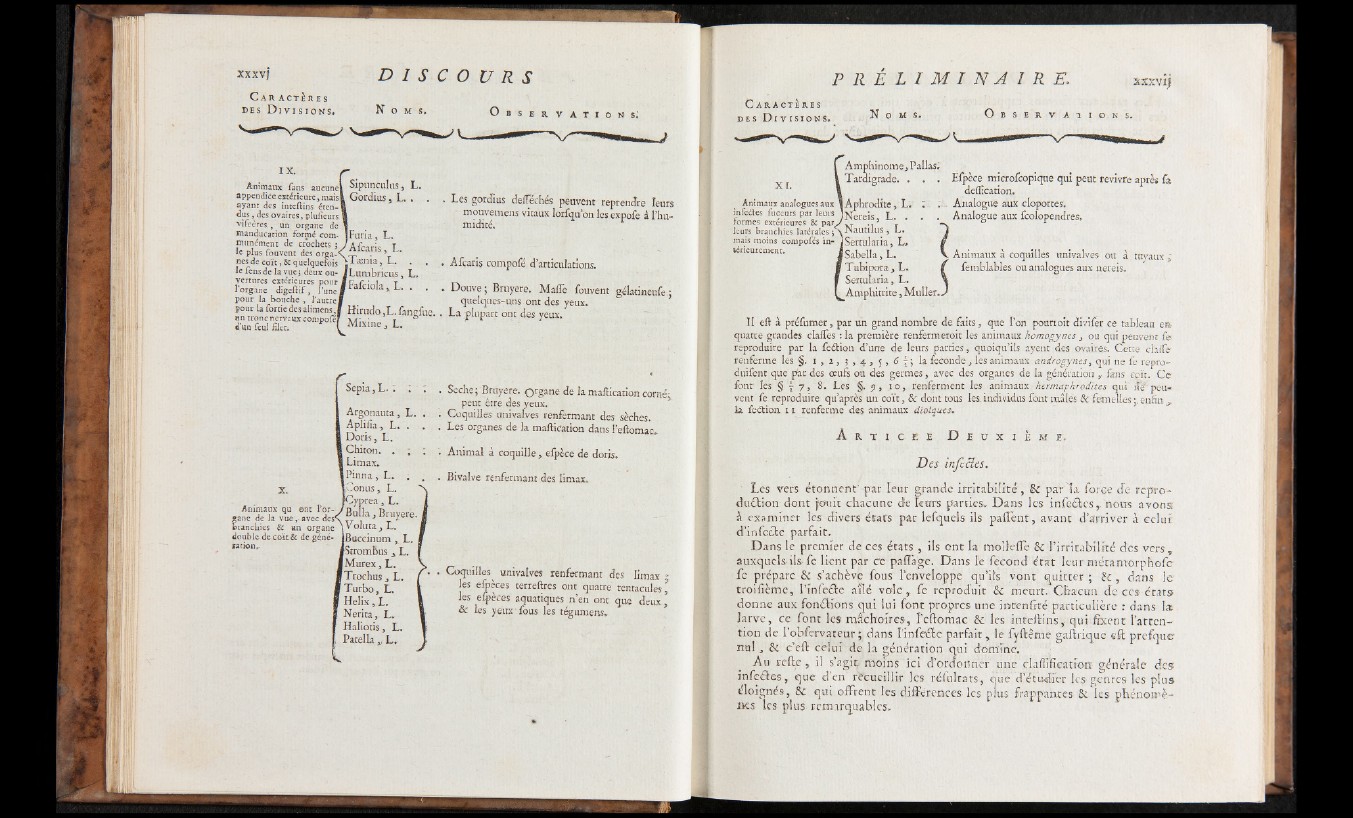 xxxvj DISCOURS
CARACTÈRES
DES DIVISIONS. NOMS. OBSERVATIONS.
IX.
Animaux sans aucune
appendice extérieure, mais
ayant des intestins éten-
dus, des ovaires, plusieurs
viscères, un organe de
manducation formé com-
munément de crochets ;
le plus souvent des orga-
nes de coït, & quelquefois
le sens de la vue ; deux ou-
vertures extérieures pour
l'organe digestif, l'une
pour la bouche, l'autre
pour la sortie des alimens,
un tronc nerveux composé
d'un seul filet.
Sipunculus, L.
Gordius, L. . . . Les gordius desséchés peuvent reprendre leurs
mouvemens vitaux lorsqu'on les expose à l'hu-
midité.
Furia, L.
Ascaris, L.
Tænia, L. . . . Ascaris composé d'articulations.
Lumbricus, L.
Fasciola, L. . . . Douve ; Bruyere. Masse souvent gélatineuse ;
quelques-uns ont des yeux.
Hirudo, L. sangsue. . La plupart ont des yeux.
Mixine, L.
X.
Animaux qu ont l'or-
gane de la vue, avec des
branchies & un organe
double de coït & de géné-
ration.
Sepia, L. . . . . Seche ; Bruyere. Organe de la mastication corné ;
peut être des yeux.
Argonauta, L. . . Coquilles univalves renfermant des sèches.
Aplisia, L. . . . Les organes de la mastication dans l'estomac.
Doris, L.
Chiton. . . . . Animal à coquille, espèce de doris.
Limax.
Pinna, L. . . . Bivalve renfermant des limax.
Conus, L.
Cyprea, L.
Bulla, Bruyere.
Voluta, L.
Buccinum, L.
Strombus, L.
Murex, L.
Trochus, L. . . Coquilles univalves renfermant des limax ;
Turbo, L. les espèces terrestres ont quatre tentacules,
Helix, L. les espèces aquatiques n'en ont que deux,
Nerita, L. & les yeux sous les tégumens.
Haliotis, L.
Patella, L.
PRÉLIMINAIRE. xxxvij
CARACTÈRES
DES DIVISIONS. NOMS. OBSERVATIONS.
XI.
Animaux analogues aux
insectes suceurs par leurs
formes extérieures & par
leurs branchies latérales ;
mais moins composés in-
térieurement.
Amphinome, Pallas.
Tardigrade. . . . Espèce microscopique qui peut revivre après sa
dessication.
Aphrodite, L. . . . Analogue aux cloportes.
Nereis, L. . . . Analogue aux scolopendres.
Nautilus, L.
Sertularia, L.
Sabella, L. Animaux à coquilles univalves ou à tuyaux ;
Tubipora, L. semblables ou analogues aux nereis.
Sertularia, L.
Amphitrite, Muller.
Il est à présumer, par un grand nombre de faits, que l'on pourroit diviser ce tableau en
quatre grandes classes : la première renfermeroit les animaux homogynes, ou qui peuvent se
reproduire par la section d'une de leurs parties, quoiqu'ils ayent des ovaires. Cette classe
renferme les §. 1, 2, 3, 4, 5, 6 ; la seconde, les animaux androgynes, qui ne se repro-
duisent que par des œufs ou des germes, avec des organes de la génération, sans coït. Ce
sont les § 7, 8. Les §. 9, 10, renferment les animaux hermaphrodites qui ne peu-
vent se reproduire qu'après un coït, & dont tous les individus sont mâles & femelles ; enfin,
la section 11 renferme des animaux dioïques.
ARTICLE DEUXIÈME.
Des insectes.
Les vers étonnent par leur grande irritabilité, & par la force de repro-
duction dont jouit chacune de leurs parties. Dans les insectes, nous avons
à examiner les divers états par lesquels ils passent, avant d'arriver à celui
d'insecte parfait.
Dans le premier de ces états, ils ont la mollesse & l'irritabilité des vers,
auxquels ils se lient par ce passage. Dans le second état leur métamorphose
se prépare & s'achève sous l'enveloppe qu'ils vont quitter ; &, dans le
troisième, l'insecte aîlé vole, se reproduit & meurt. Chacun de ces états
donne aux fonctions qui lui sont propres une intensité particulière : dans la
larve, ce sont les mâchoires, l'estomac & les intestins, qui fixent l'atten-
tion de l'observateur ; dans l'insecte parfait, le système gastrique est presque
nul, & c'est celui de la génération qui domine.
Au reste, il s'agit moins ici d'ordonner une classification générale des
insectes, que d'en recueillir les résultats, que d'étudier les genres les plus
éloignés, & qui offrent les différences les plus frappantes & les phénomè-
nes les plus remarquables.